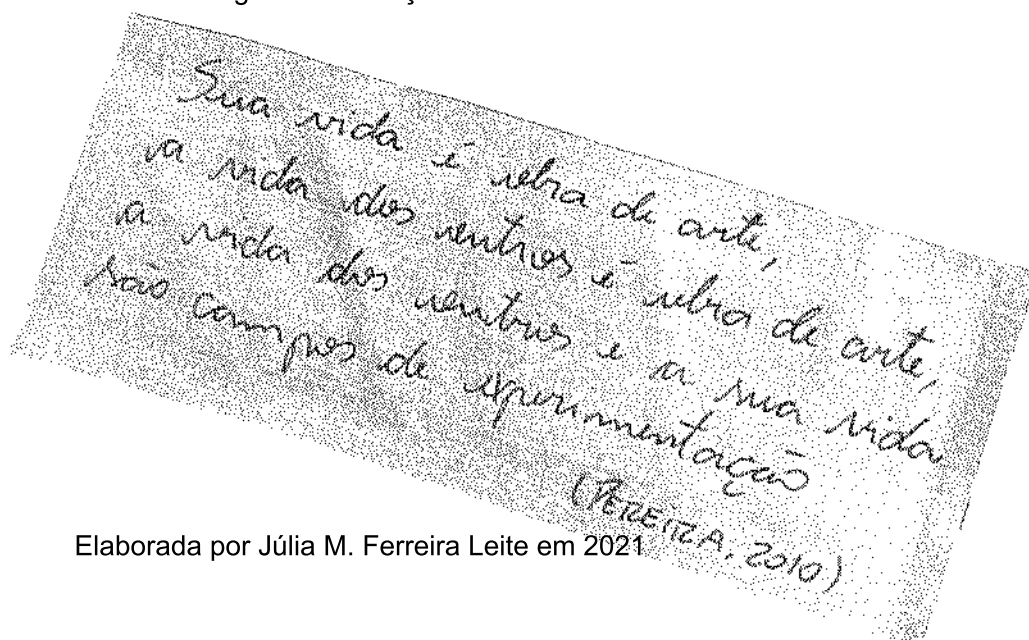 Sua vida é obra de arte,
a vida dos outros é obra de arte,
a vida dos outros e a sua vida
são campos de experimentação
(PEREIRA, 2010)
Elaborada por Júlia M. Ferreira Leite em 2021